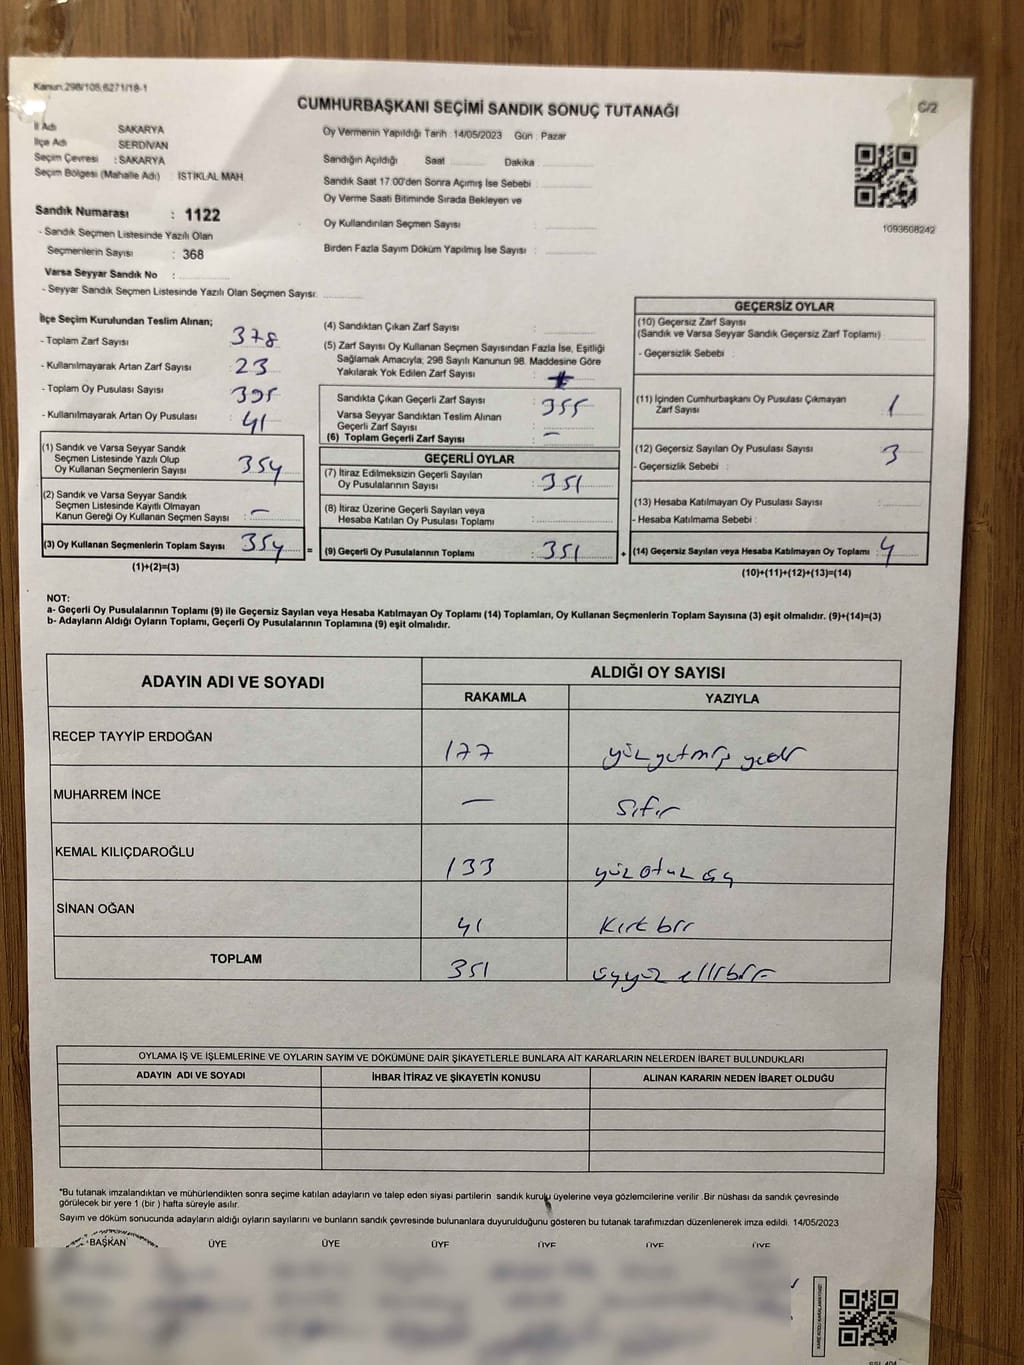 Kanun:298/105;6271/18-1
CUMHURBAŞKANI SEÇİMİ SANDIK SONUÇ TUTANAĞI
C/2
İl Adı SAKARYA
İlçe Adı SERDİVAN
Seçim Çevresi : SAKARYA
Seçim Bölgesi (Mahalle Adı) : İSTİKLAL MAH.
Sandık Numarası : 1122
- Sandık Seçmen Listesinde Yazılı Olan
Seçmenlerin Sayısı : 368
Varsa Seyyar Sandık No :
- Seyyar Sandık Seçmen Listesinde Yazılı Olan Seçmen Sayısı:
Oy Vermenin Yapıldığı Tarih : 14/05/2023 Gün : Pazar
Sandığın Açıldığı Saat Dakika
Sandık Saat 17.00'den Sonra Açımış İse Sebebi :
Oy Verme Saati Bitiminde Sırada Bekleyen ve
Oy Kullandırılan Seçmen Sayısı :
Birden Fazla Sayım Döküm Yapılmış İse Sayısı :
1093608242
İlçe Seçim Kurulundan Teslim Alınan;
- Toplam Zarf Sayısı : 378
- Kullanılmayarak Artan Zarf Sayısı : 23
- Toplam Oy Pusulası Sayısı : 395
- Kullanılmayarak Artan Oy Pusulası : 41
(1) Sandık ve Varsa Seyyar Sandık
Seçmen Listesinde Yazılı Olup
Oy Kullanan Seçmenlerin Sayısı : 354
(2) Sandık ve Varsa Seyyar Sandık
Seçmen Listesinde Kayıtlı Olmayan
Kanun Gereği Oy Kullanan Seçmen Sayısı : –
(3) Oy Kullanan Seçmenlerin Toplam Sayısı : 354
=
(1)+(2)=(3)
(4) Sandıktan Çıkan Zarf Sayısı :
(5) Zarf Sayısı Oy Kullanan Seçmen Sayısından Fazla İse, Eşitliği
Sağlamak Amacıyla; 298 Sayılı Kanunun 98. Maddesine Göre
Yakılarak Yok Edilen Zarf Sayısı :
Sandıkta Çıkan Geçerli Zarf Sayısı : 355
Varsa Seyyar Sandıktan Teslim Alınan
Geçerli Zarf Sayısı : –
(6) Toplam Geçerli Zarf Sayısı :
GEÇERLİ OYLAR
(7) İtiraz Edilmeksizin Geçerli Sayılan
Oy Pusulalarının Sayısı : 351
(8) İtiraz Üzerine Geçerli Sayılan veya
Hesaba Katılan Oy Pusulası Toplamı :
(9) Geçerli Oy Pusulalarının Toplamı : 351
+
GEÇERSİZ OYLAR
(10) Geçersiz Zarf Sayısı
(Sandık ve Varsa Seyyar Sandık Geçersiz Zarf Toplamı)
- Geçersizlik Sebebi :
(11) İçinden Cumhurbaşkanı Oy Pusulası Çıkmayan
Zarf Sayısı : 1
(12) Geçersiz Sayılan Oy Pusulası Sayısı : 3
- Geçersizlik Sebebi :
(13) Hesaba Katılmayan Oy Pusulası Sayısı :
- Hesaba Katılmama Sebebi :
(14) Geçersiz Sayılan veya Hesaba Katılmayan Oy Toplamı : 4
(10)+(11)+(12)+(13)=(14)
NOT:
a- Geçerli Oy Pusulalarının Toplamı (9) ile Geçersiz Sayılan veya Hesaba Katılmayan Oy Toplamı (14) Toplamları, Oy Kullanan Seçmenlerin Toplam Sayısına (3) eşit olmalıdır. (9)+(14)=(3)
b- Adayların Aldığı Oyların Toplamı, Geçerli Oy Pusulalarının Toplamına (9) eşit olmalıdır.
ADAYIN ADI VE SOYADI ALDIĞI OY SAYISI
RAKAMLA YAZIYLA
RECEP TAYYİP ERDOĞAN 177 yüz yetmiş yedi
MUHARREM İNCE – Sıfır
KEMAL KILIÇDAROĞLU 133 yüz otuz üç
SİNAN OĞAN 41 Kırk bir
TOPLAM 351 üçyüz elli bir
OYLAMA İŞ VE İŞLEMLERİNE VE OYLARIN SAYIM VE DÖKÜMÜNE DAİR ŞİKAYETLERLE BUNLARA AİT KARARLARIN NELERDEN İBARET BULUNDUKLARI
ADAYIN ADI VE SOYADI İHBAR İTİRAZ VE ŞİKAYETİN KONUSU ALINAN KARARIN NEDEN İBARET OLDUĞU
*Bu tutanak imzalandıktan ve mühürlendikten sonra seçime katılan adayların ve talep eden siyasi partilerin sandık kurulu üyelerine veya gözlemcilerine verilir .Bir nüshası da sandık çevresinde
görülecek bir yere 1 (bir ) hafta süreyle asılır.
Sayım ve döküm sonucunda adayların aldığı oyların sayılarını ve bunların sandık çevresinde bulunanlara duyurulduğunu gösteren bu tutanak tarafımızdan düzenlenerek imza edildi. 14/05/2023
BAŞKAN ÜYE ÜYE ÜYE ÜYE ÜYE ÜYE